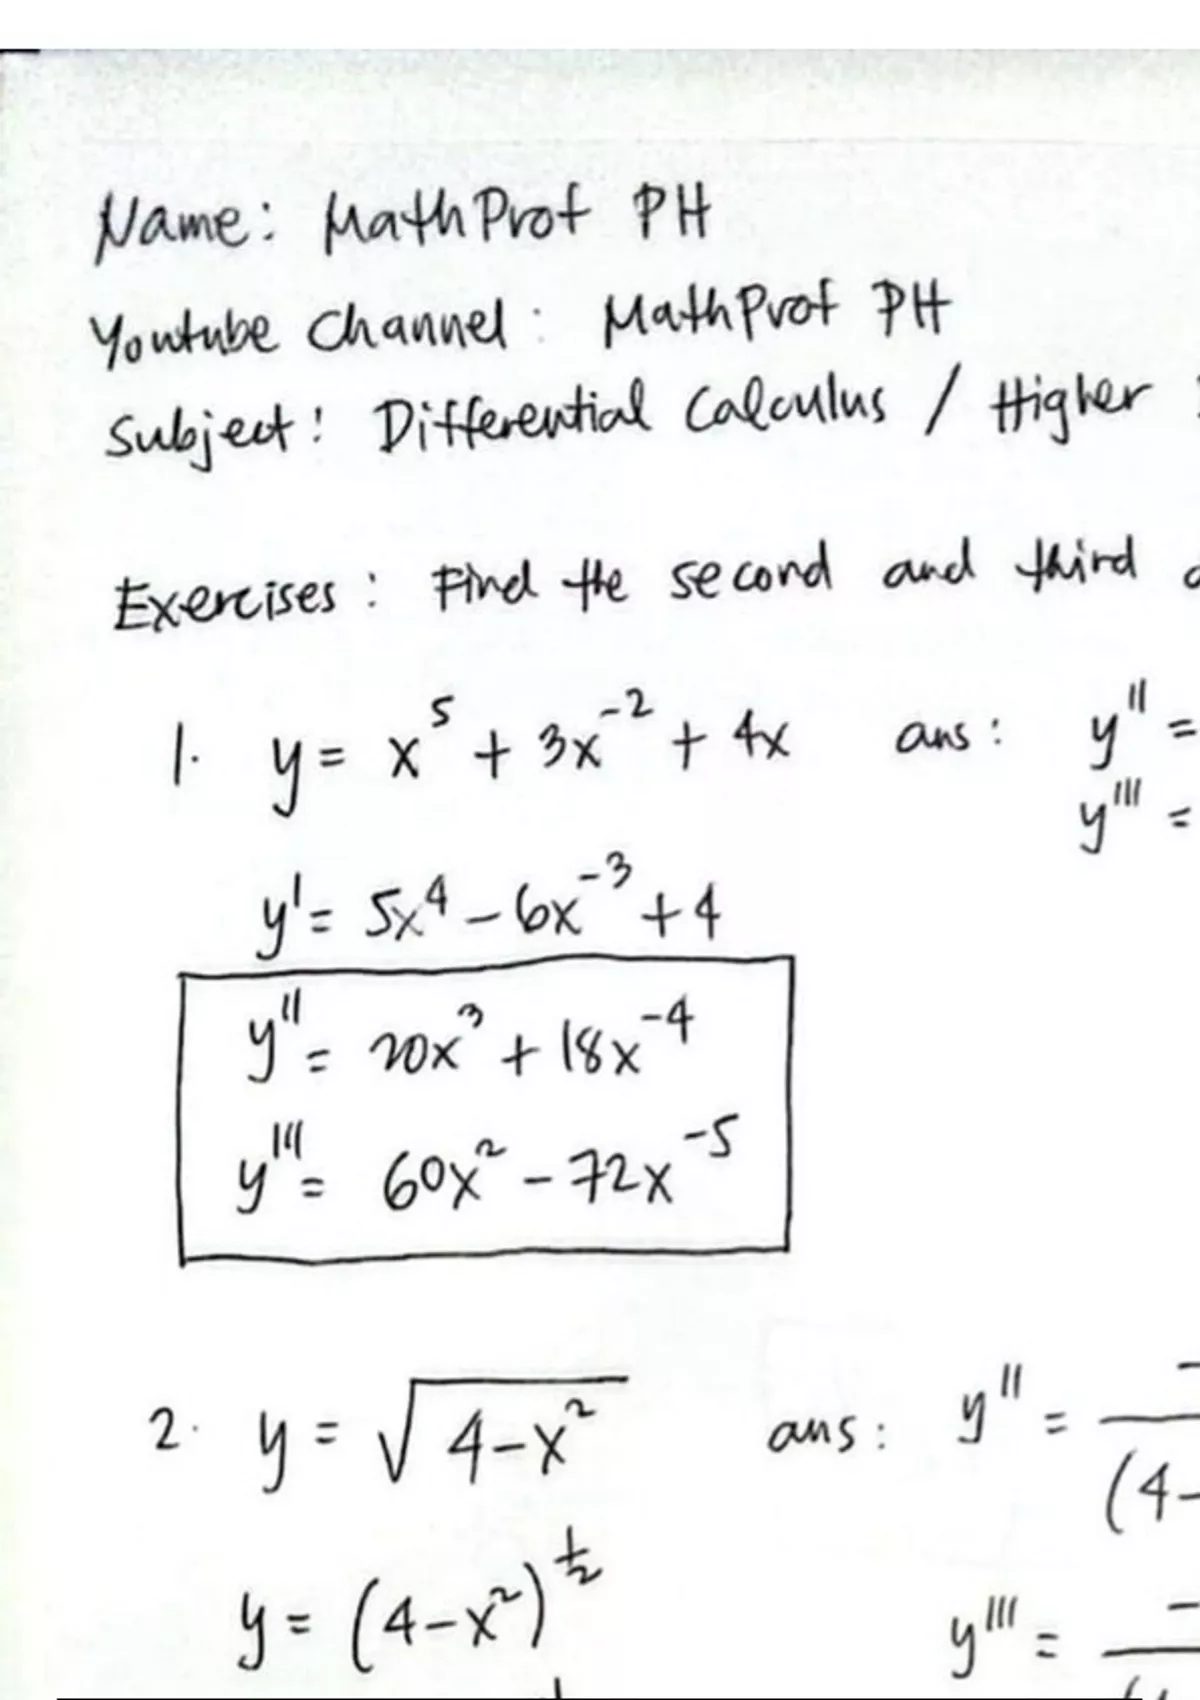 Name: MathProf PH
Youtube Channel: MathProf PH
Subject: Differential Calculus / Higher
Exercises: Find the second and third
1. y = x⁵ + 3x⁻² + 4x ans: y'' =
y''' =
y' = 5x⁴ - 6x⁻³ + 4
y'' = 20x³ + 18x⁻⁴
y''' = 60x² - 72x⁻⁵
2. y = √(4-x²) ans: y'' = -
(4-
y = (4-x²)^½
y''' = -